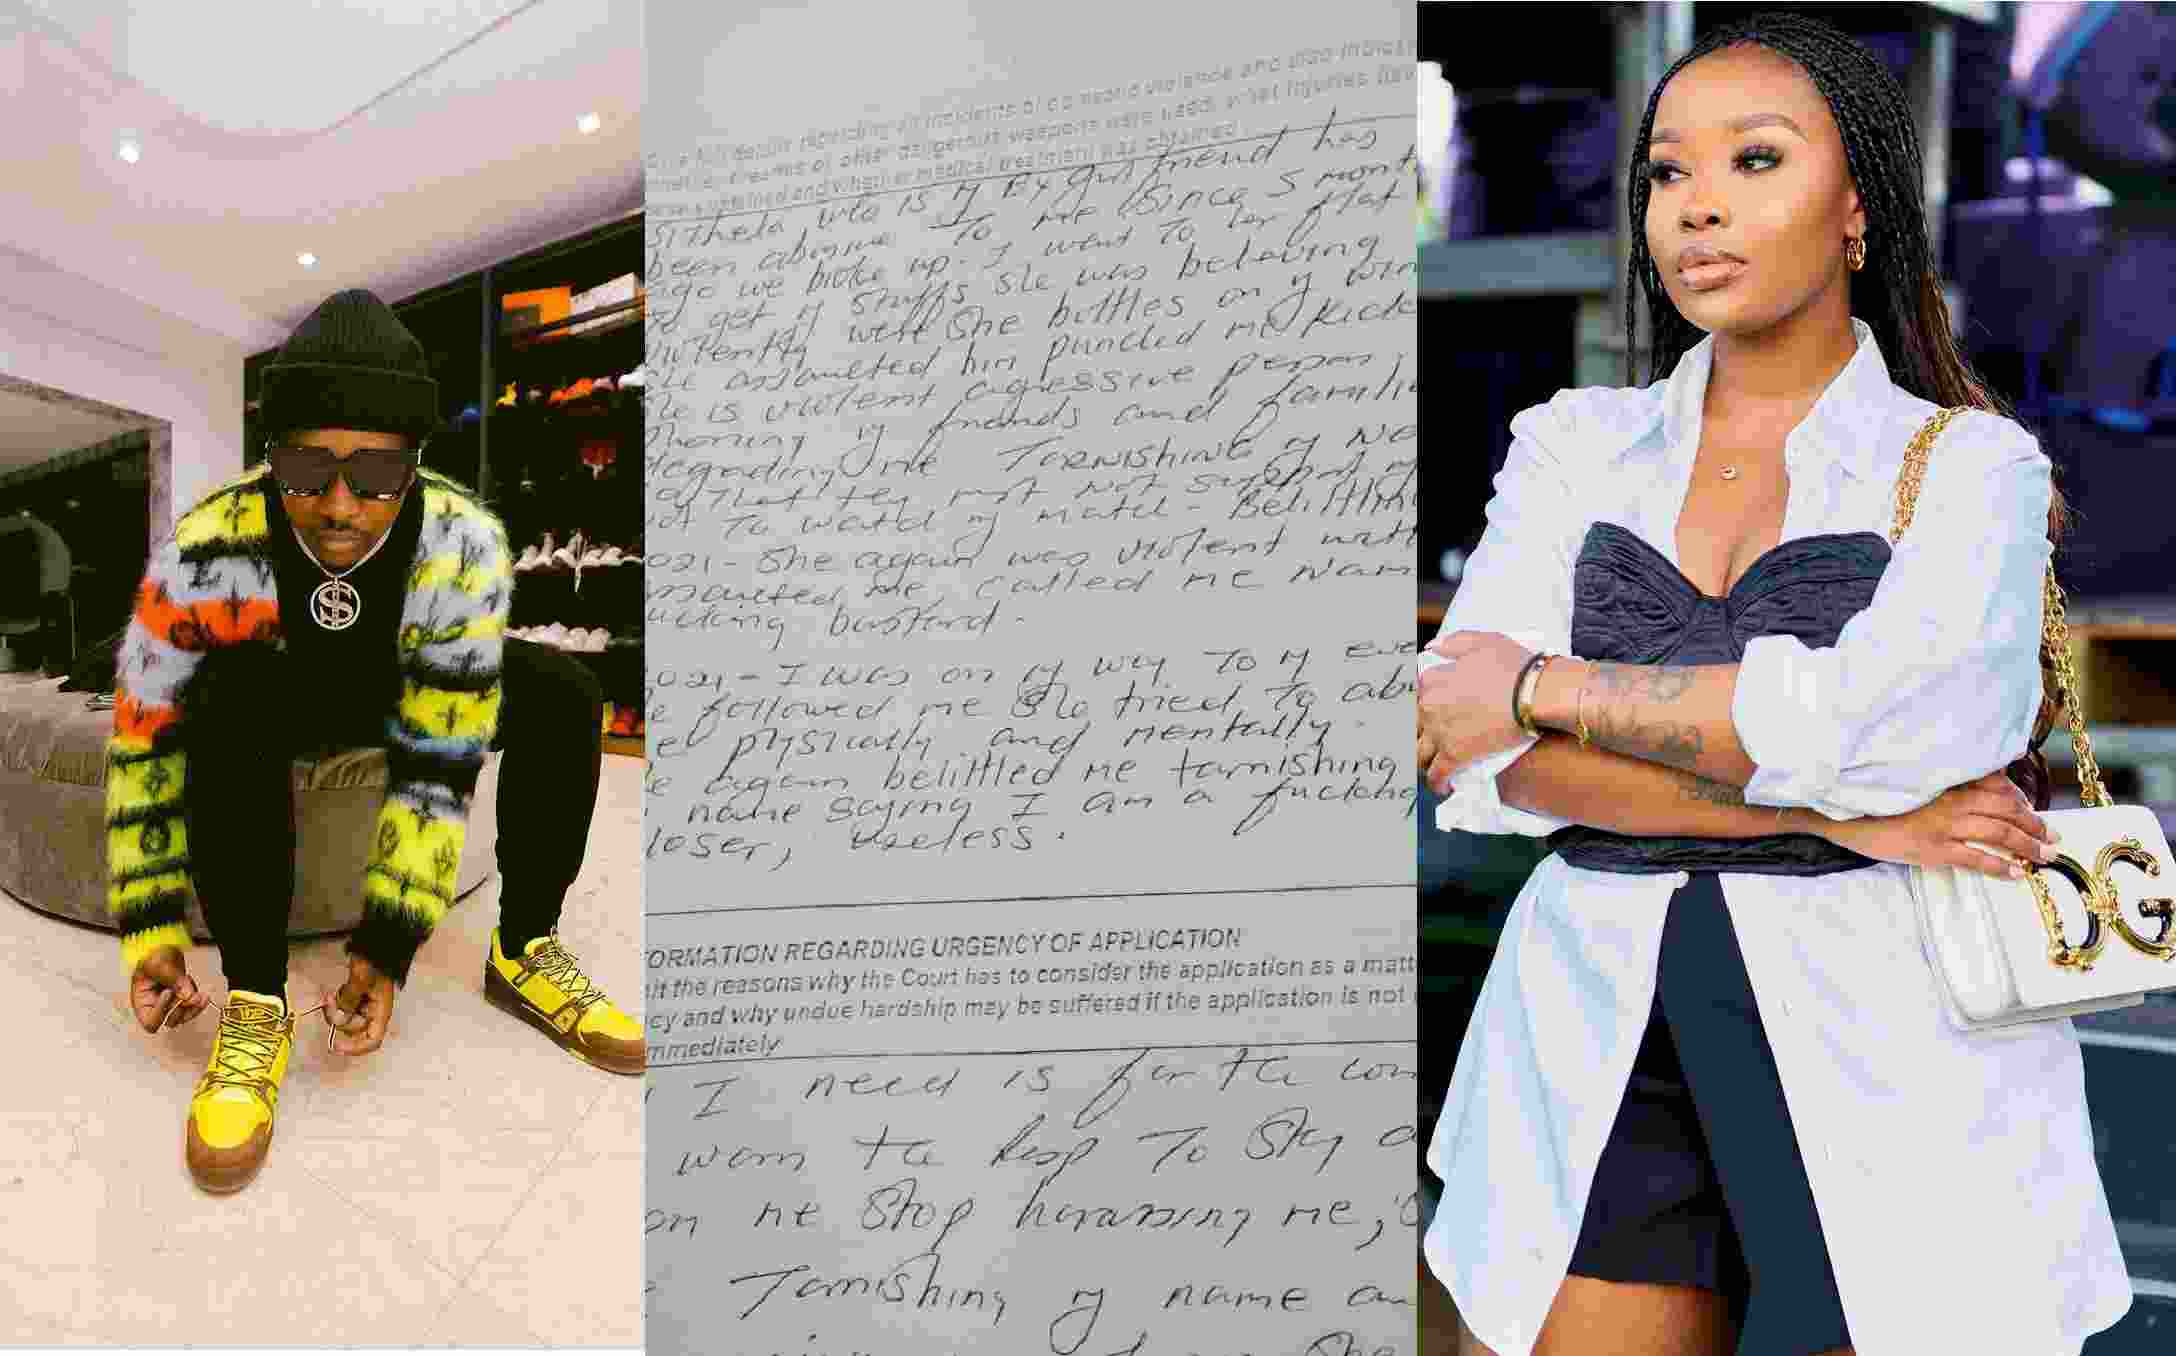 Give full details regarding all incidents of domestic violence and also indicate
whether firearms or other dangerous weapons were used, what injuries
were sustained and whether medical treatment was obtained
Sithela who is my Ex girlfriend has
been abusive To me since 5 mont
ago we broke up. I went To her flat
To get my stuffs she was behaving
violently went she bottles on my win
she assaulted him punched me kick
she is violent agressive person,
my friends and famili
degrading me TARNISHING my
that they must not support my
not To watch my match - Belittlin
021 - She again was violent with
assaulted me, called me Nam
ucking bastard.
021 - I was on my way To my eve
e followed me She tried To abu
e physically and mentally.
e again belittled me tarnishing
name saying I am a fucking
loser, useless.
FORMATION REGARDING URGENCY OF APPLICATION
the reasons why the Court has to consider the application as a matt
cy and why undue hardship may be suffered if the application is not
mmediately
I need is for the cou
warn the Resp To Stay a
om me Stop harassing me,
Tarnishing my name an
She
$
DG